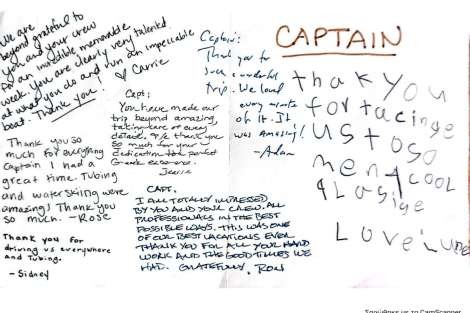 We are
beyond grateful to
you and your crew
for an incredible memorable
week. You are clearly very talented
at what you do and run an impeccable
boat. Thank you
♡ Carrie
Captain:
Thank you for
such a wonderful
trip. We loved
every minute
of it. It
was amazing!
- Adam
CAPTAIN
thak you
for tacinge
us to so
men cool
plasise
Love Luke
Capt:
You have made our
trip beyond amazing,
taking care of every
detail. We thank you
so much for your
dedication to the perfect
Greek
Jessie
Thank you so
much for everything
Captain I had a
great time. Tubing
and waterskiing were
amazing! Thank you
so much. -Rose
Thank you for
driving us everywhere
and Tubing.
-Sidney
CAPT.
I AM TOTALLY IMPRESSED
BY YOU AND YOUR CREW. ALL
PROFESSIONALS IN THE BEST
POSSIBLE WAYS. THIS WAS ONE
OF OUR BEST VACATIONS EVER
THANK YOU FOR ALL YOUR HARD
WORK AND THE GOOD TIMES WE
HAD. GRATEFULLY, RON
Σαρώθηκε με το CamScanner